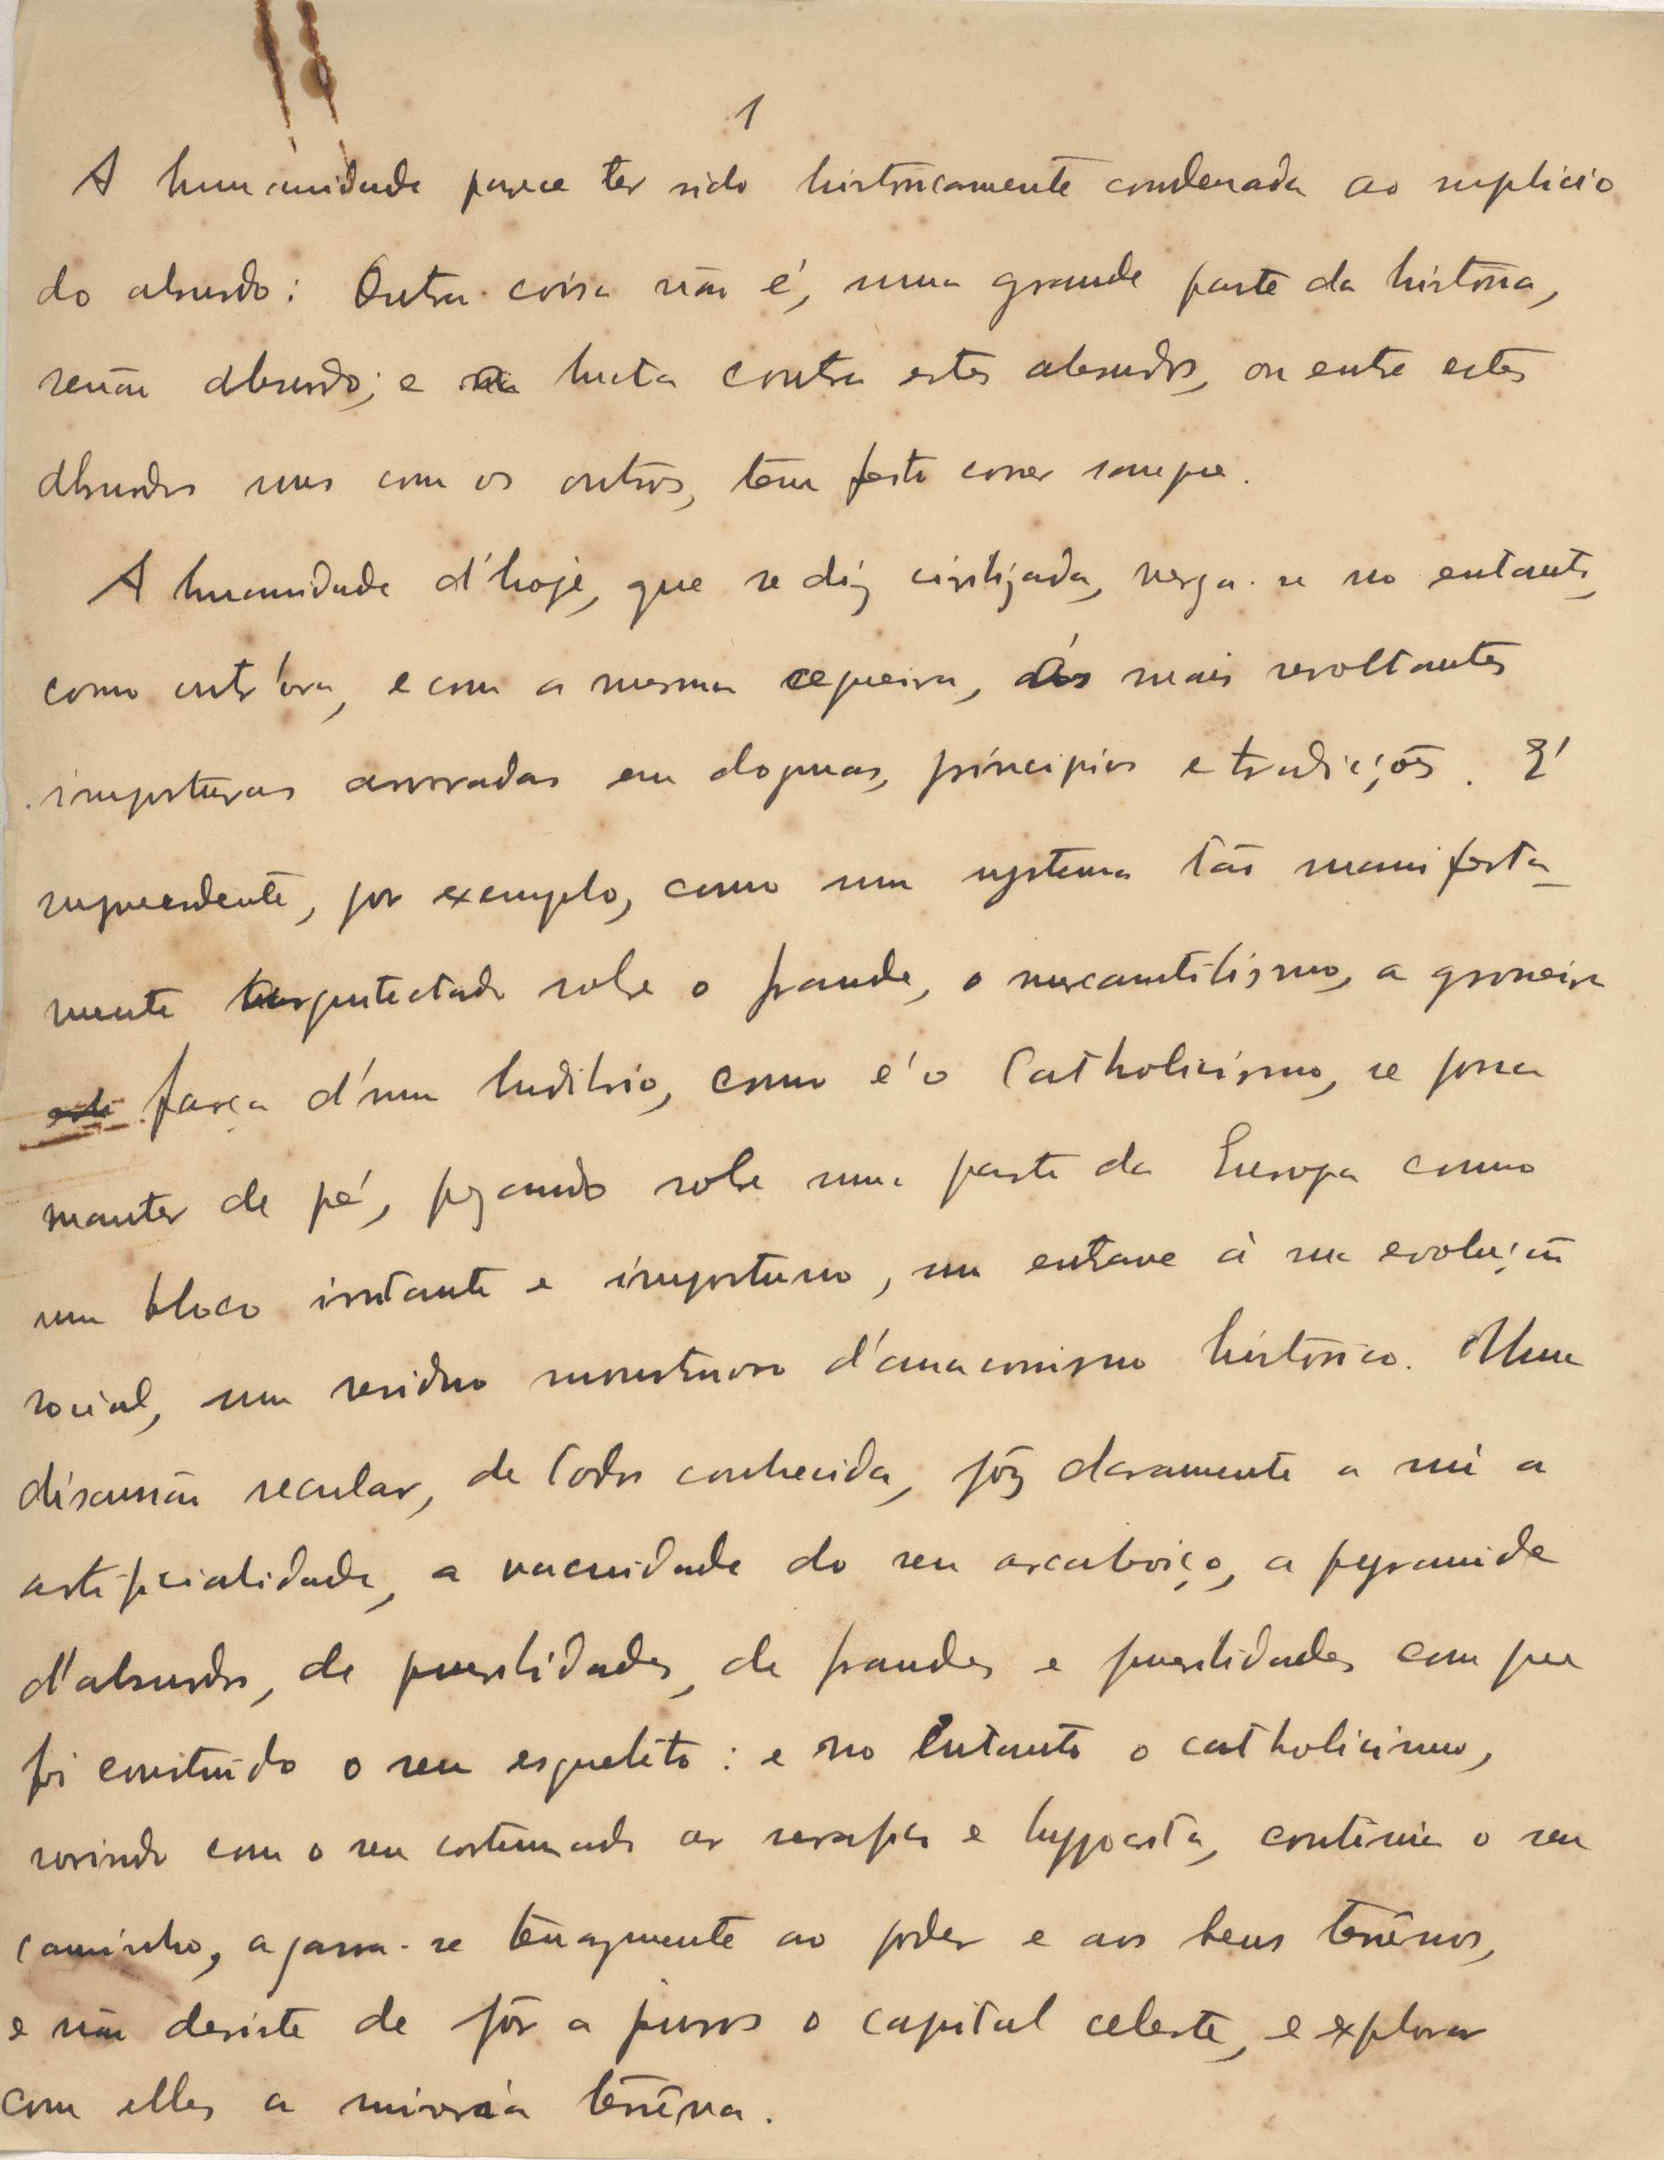 1
A humanidade parece ter sido historicamente condenada ao suplicio
do absurdo: Outra coisa não é, uma grande parte da história,
senão absurdo; e a lucta contra estes absurdos, ou entre estes
absurdos uns com os outros, tem feito correr sangue.
A humanidade d'hoje, que se diz civilizada, verga-se no entanto,
como outr'ora, e com a mesma cegueira, ás mais revoltantes
imposturas arvoradas em dogmas, principios e tradições. É
surpreendente, por exemplo, como um systema tão manifesta-
mente arquitectado sobre o fraude, o mercantilismo, a grosseira
farça d'um ludibrio, como é o Catholicismo, se possa
manter de pé, pezando sobre uma parte da Europa como
um bloco irritante e importuno, um entrave á sua evolução
social, um residuo monstruoso d'anacronismo histórico. Uma
discussão secular, de todos conhecida, pôz claramente a nú a
artificialidade, a vacuidade do seu arcaboiço, a pyramide
d'absurdos, de puerilidades, de fraudes e puerilidades com que
foi construido o seu esqueléto: e no entanto o catholicismo,
sorrindo com o seu costumado ar serafico e hyppocrita, continúa o seu
caminho, agarra-se tenazmente ao poder e aos bens terrênos,
e não desiste de pôr a juros o capital celeste, e explorar
com elles a miseria terrêna.